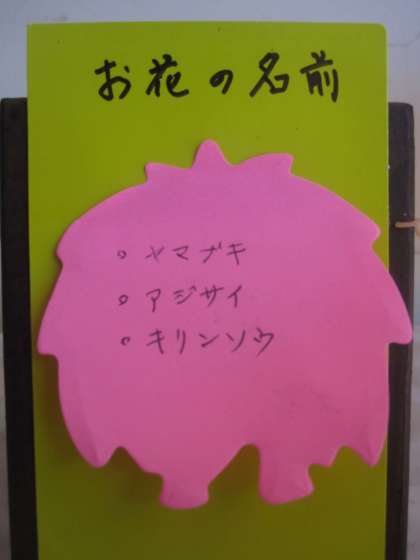 お花の名前
• ヤマブキ
• アジサイ
• キリンソウ